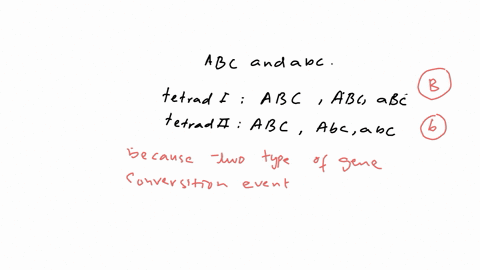 ABC and abc.
B
tetrad I : ABC , ABC, aBC
tetrad II : ABC , Abc, abc
b
because two type of gene
conversition event